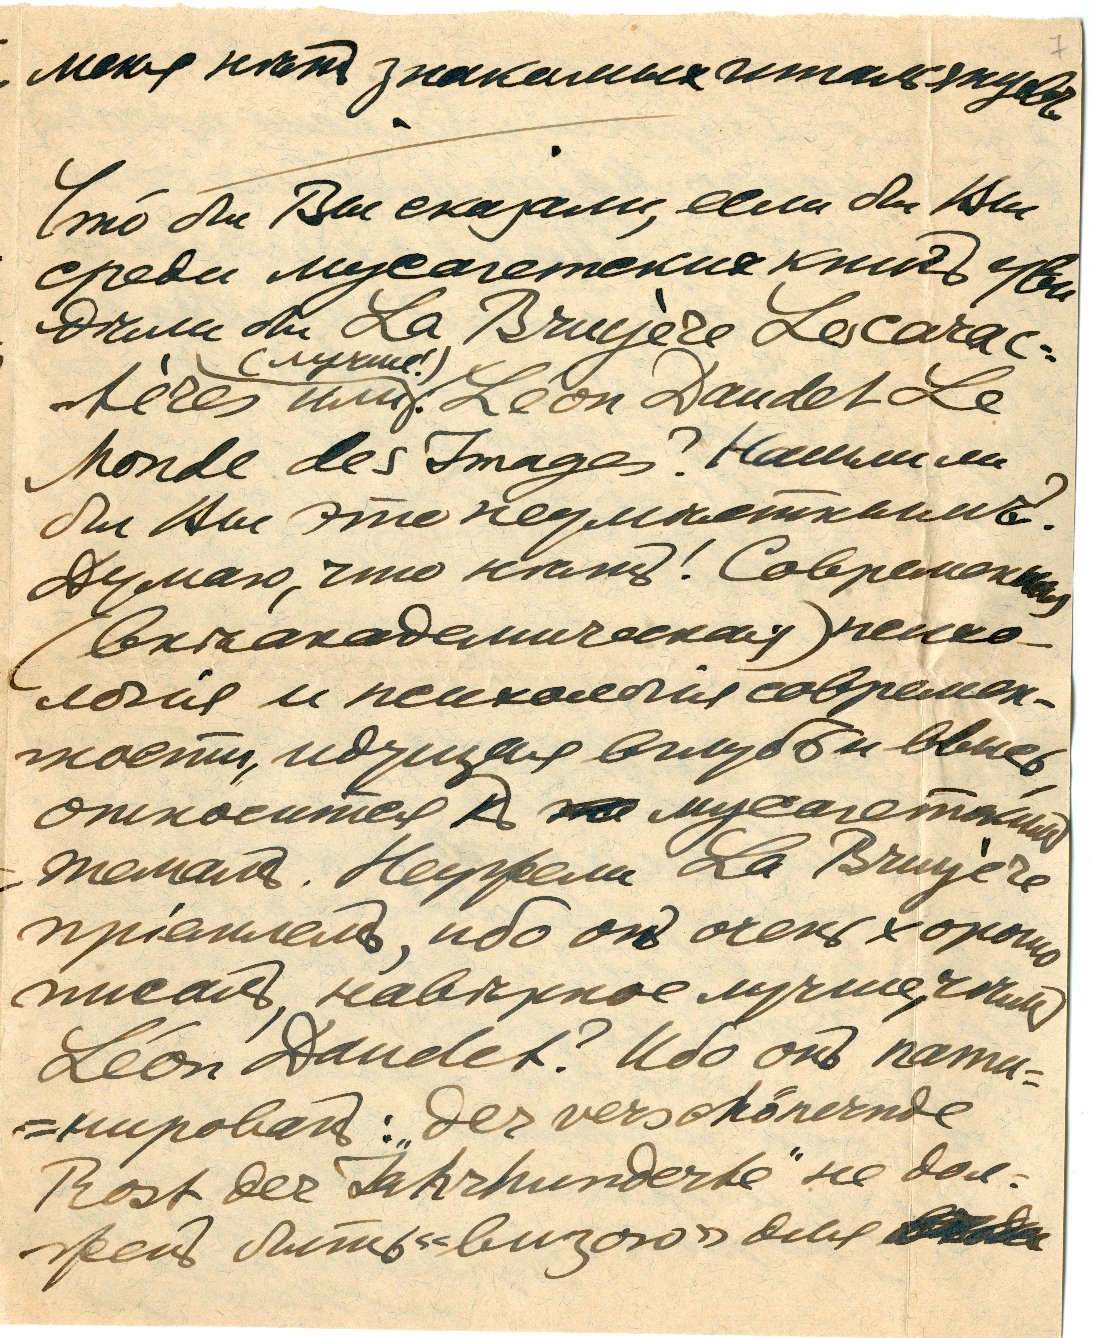 7
меня нѣтъ знакомыхъ итальянцевъ.
Что бы Вы сказали, если бы Вы
среди мусагетскихъ книгъ уви
дѣли бы La Bruyère Les carac-
(лучше!)
tères или Léon Daudet Le
Monde des Images? Нашли ли
бы Вы это неумѣстнымъ?
Думаю, что нѣтъ! Современная
(внѣакадемическая) психо-
логія и психологія современ-
ности, идущая вглубь и ввысь,
относится къ мусагетскимъ
темамъ. Неужели La Bruyère
пріемлемъ, ибо онъ очень хорошо
писалъ, навѣрное лучше, чѣмъ
Léon Daudet? Ибо онъ пати-
=нированъ: „der verschönernde
Rost der Jahrhunderte" не дол-
женъ быть «визою» для